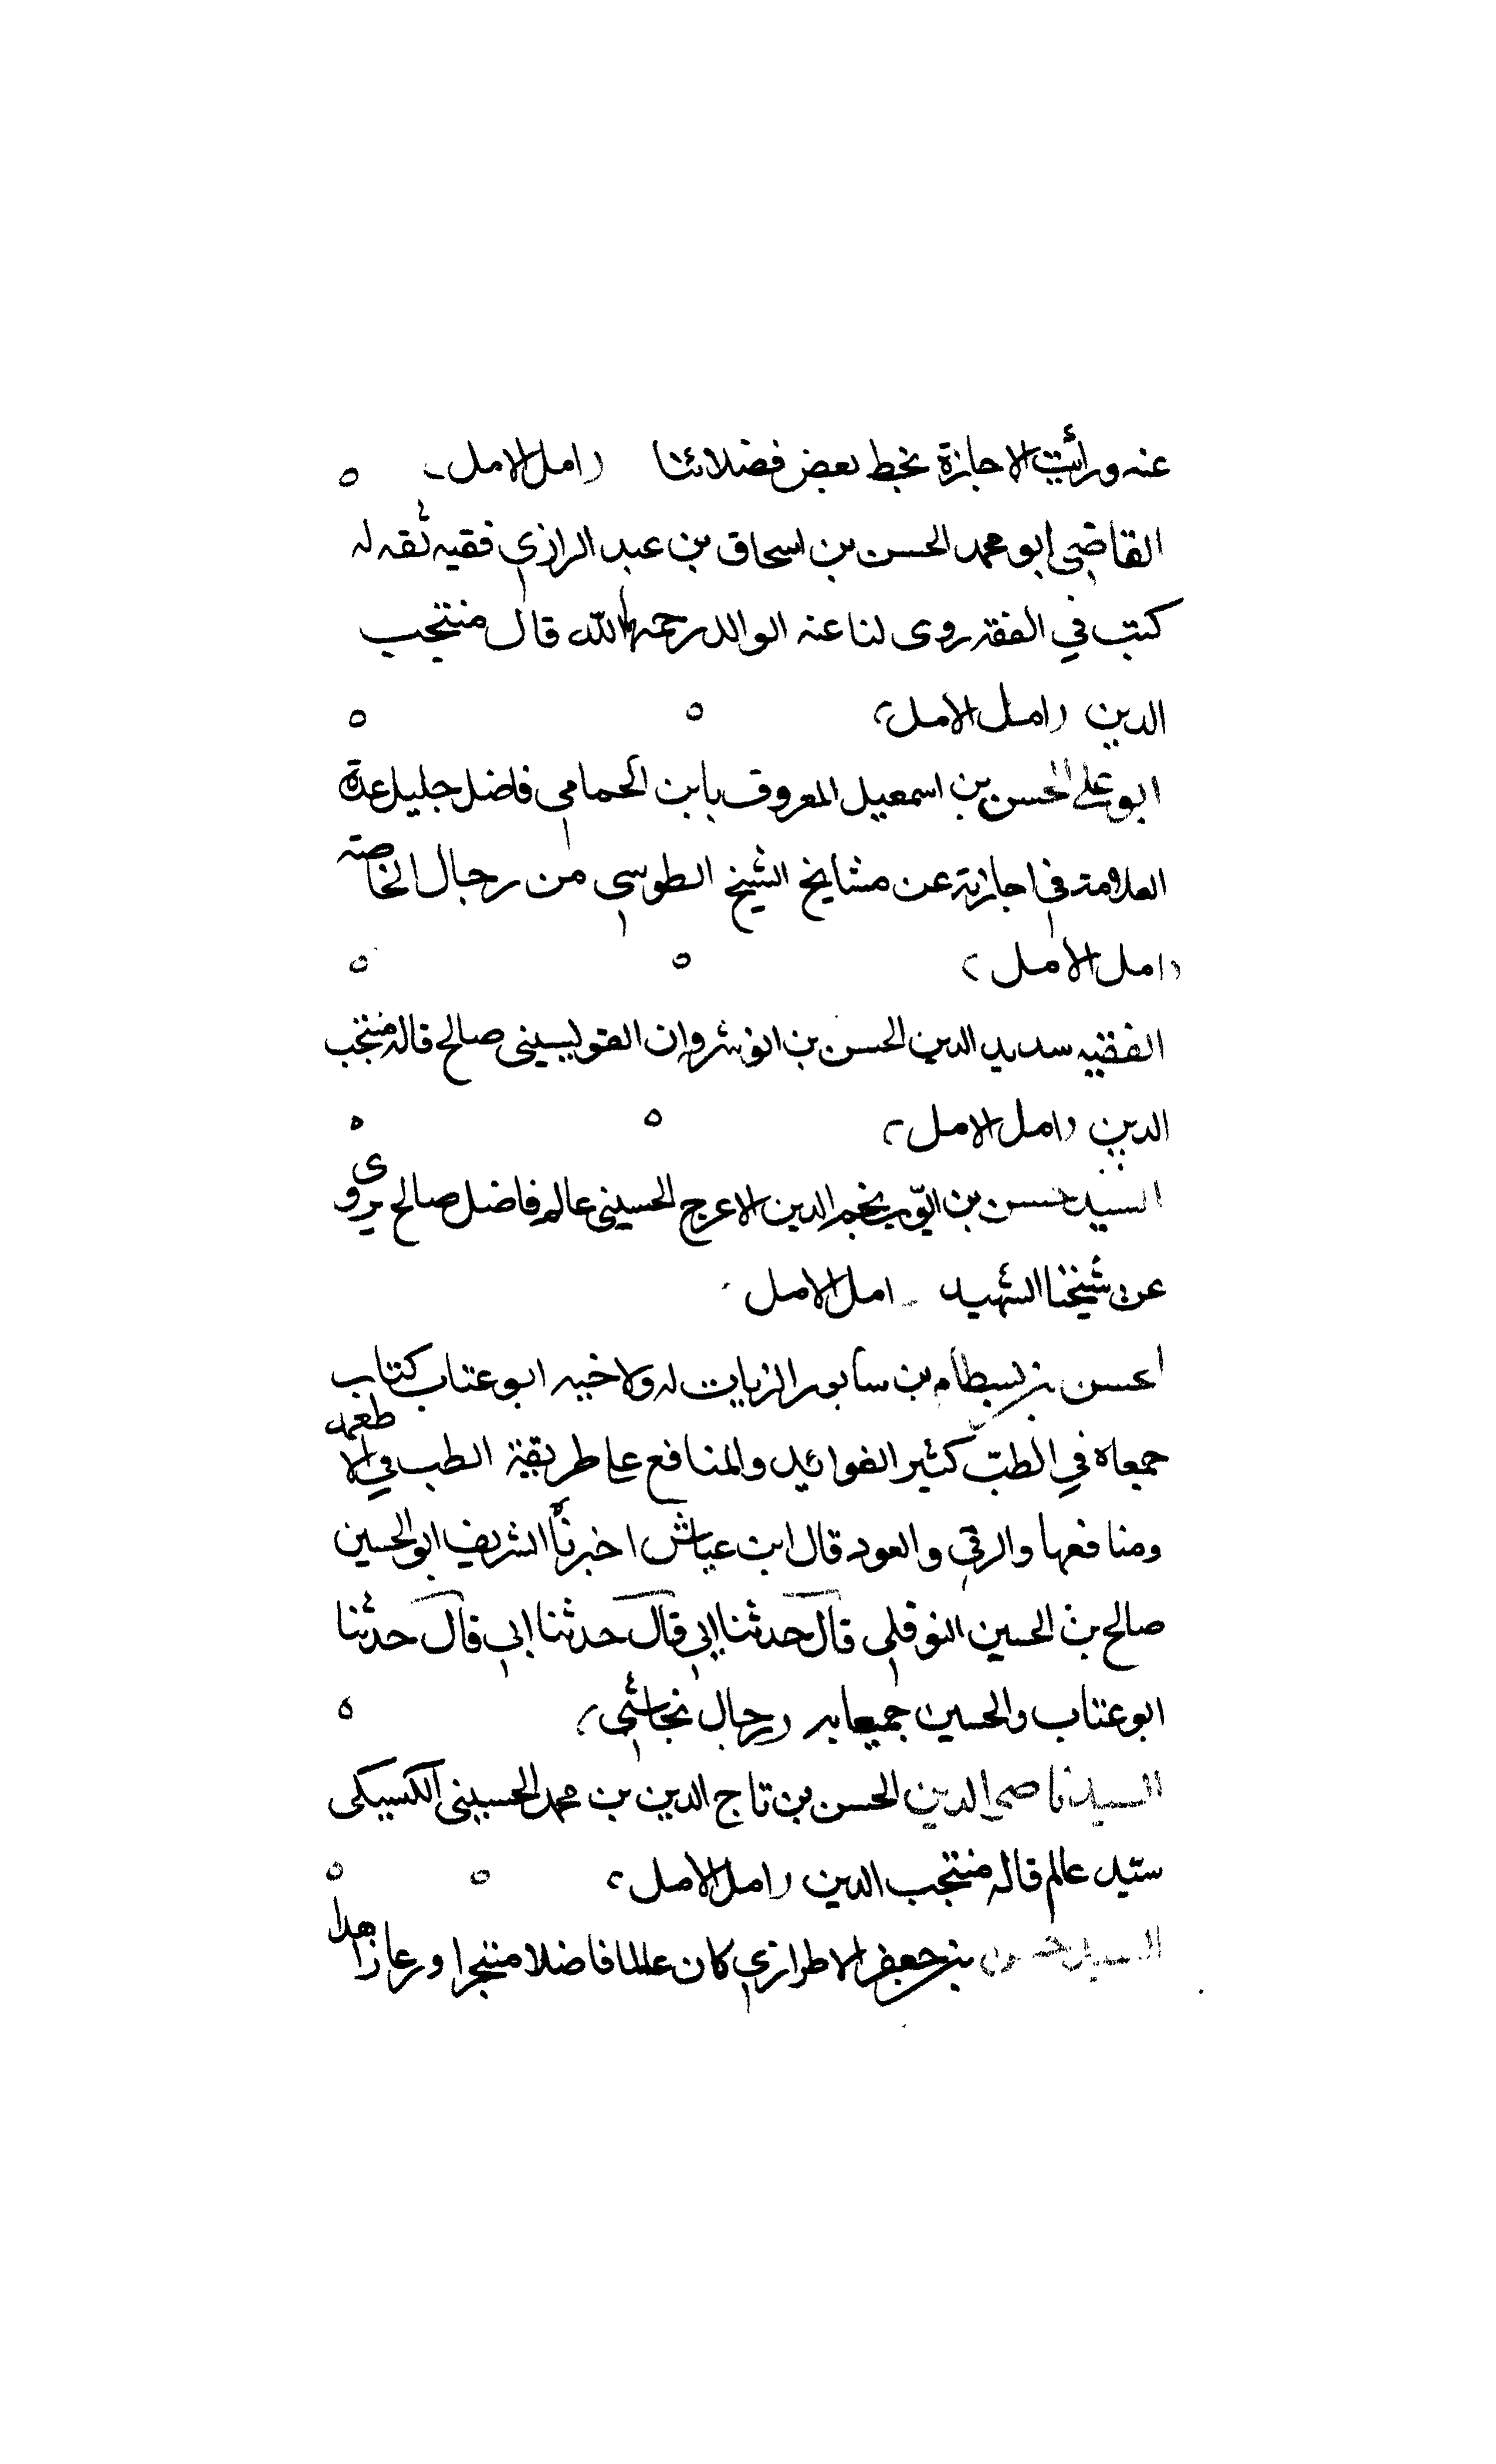 عنه ورأيت الاجازة بخط بعض فضلائنا (امل الامل)
القاضي ابو محمد الحسن بن اسحاق بن عبد الرازي فقيه ثقه له
كتب في الفقه روى لنا عنه الوالد رحمهما الله قال منتجب
الدين (امل الامل)
ابو علي الحسن بن اسمعيل المعروف بابن الحمامي فاضل جليل عده
العلامة في اجازته عن مشايخ الشيخ الطوسي من رجال الخاصة
(امل الامل)
الفقيه سديد الدين الحسن بن انوشروان القوليسيني صالح قاله منتجب
الدين (امل الامل)
السيد حسن بن ايّوب نجم الدين الاعرج الحسيني عالم فاضل صالح يروى
عن شيخنا الشهيد امل الامل
حسن بن بسطام بن سابور الزيات له ولاخيه ابو عتاب كتاب
جمعاه في الطبّ كثير الفوائد والمنافع على طريقة الطب في الاطعمه
ومنافعها والرقي والعود قال ابن عياش اخبرنا الشريف ابو الحسين
صالح بن الحسين النوفلي قال حدثنا ابي قال حدثنا ابي قال حدثنا
ابو عتاب والحسين جميعا به (رجال نجاشي)
السيد الدين الحسن بن تاج الدين بن محمد الحسيني الكسيكي
سيّد عالم قاله منتجب الدين (امل الامل)
السيد حسن بن جعفر الاطرازي كان عالما فاضلا متبحرا ورعا زاهدا